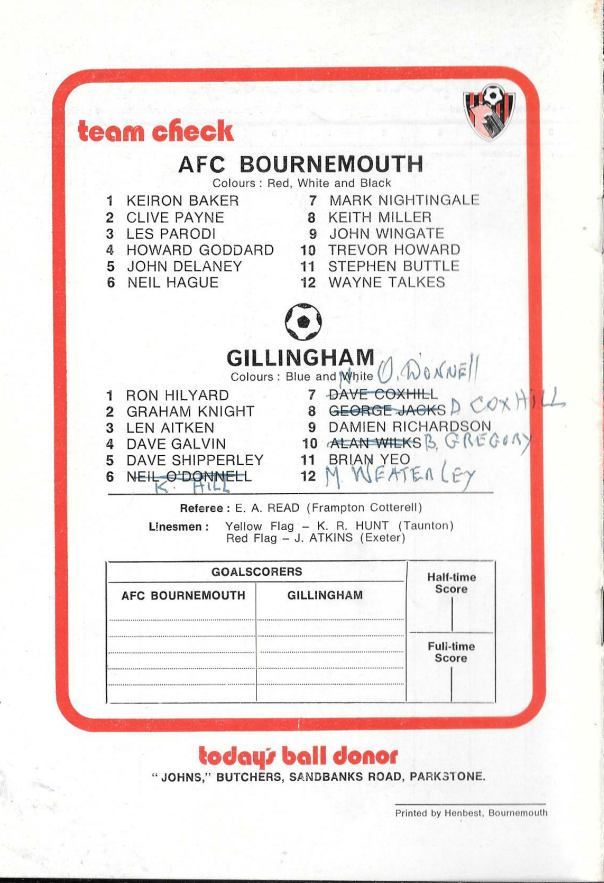 team check
AFC BOURNEMOUTH
Colours : Red, White and Black
1 KEIRON BAKER 7 MARK NIGHTINGALE
2 CLIVE PAYNE 8 KEITH MILLER
3 LES PARODI 9 JOHN WINGATE
4 HOWARD GODDARD 10 TREVOR HOWARD
5 JOHN DELANEY 11 STEPHEN BUTTLE
6 NEIL HAGUE 12 WAYNE TALKES
GILLINGHAM
Colours : Blue and White
N. O. DONNELL
1 RON HILYARD 7 DAVE COXHILL
2 GRAHAM KNIGHT 8 GEORGE JACKS D COXHILL
3 LEN AITKEN 9 DAMIEN RICHARDSON
4 DAVE GALVIN 10 ALAN WILKS B, GREGORY
5 DAVE SHIPPERLEY 11 BRIAN YEO
6 NEIL O'DONNELL 12 M WEATERLEY
K. HILL
Referee : E. A. READ (Frampton Cotterell)
Linesmen : Yellow Flag – K. R. HUNT (Taunton)
Red Flag – J. ATKINS (Exeter)
GOALSCORERS
AFC BOURNEMOUTH GILLINGHAM
Half-time
Score
Full-time
Score
today's ball donor
" JOHNS," BUTCHERS, SANDBANKS ROAD, PARKSTONE.
Printed by Henbest, Bournemouth